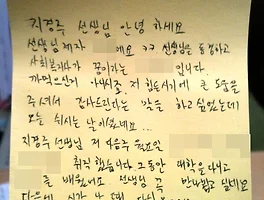 지경주 선생님 안녕하세요
선생님 제자 에요 ㅋㅋ 선생님을 동경하고
사회복지사가 꿈이라는 입니다.
까먹으신거 아니시죠. 저 힘들시기에 큰 도움을
주셔서 감사드린다는 말을 하고싶었는데
오늘 쉬시는 날이셨네요...
지경주 선생님 저 다음주 월요일
취직했습니다 그동안 대학을 다니고
를 배웠네요 선생님 꼭 만나뵙고 싶네요
다음에